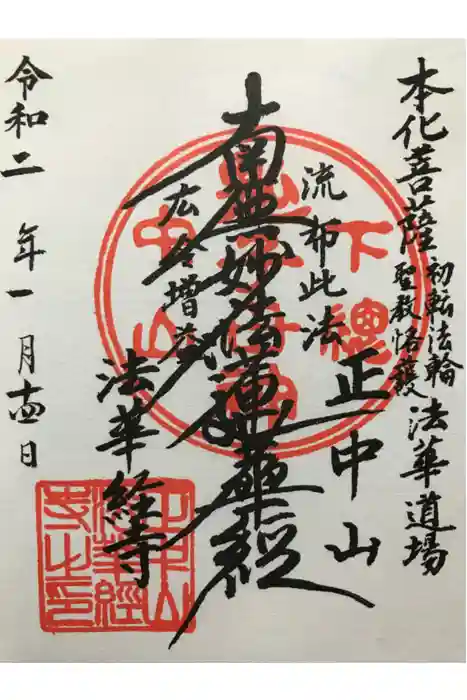 本化菩薩
初転法輪
聖教恪護
法華道場
正中山
流布此法
南無妙法蓮華経
広令増益
法華経寺
令和二年一月十四日
下總
中山